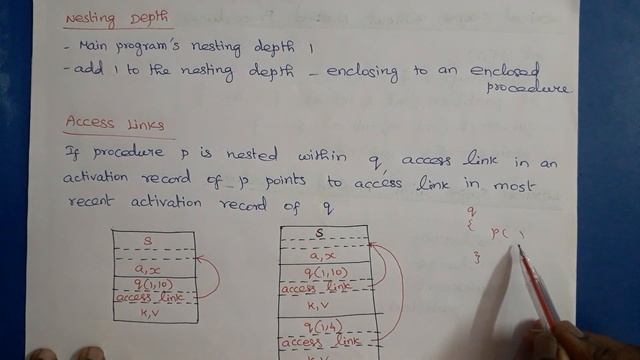 Nesting Depth
- Main program's nesting depth 1
- add 1 to the nesting depth - enclosing to an enclosed
procedure
Access Links
If procedure p is nested within q, access link in an
activation record of p points to access link in most
recent activation record of q
q
{
p( )
}
s
a,x
q(1,10)
access link
k,v
s
a,x
q(1,10)
access link
k,v
q(1,4)
access link
k,v